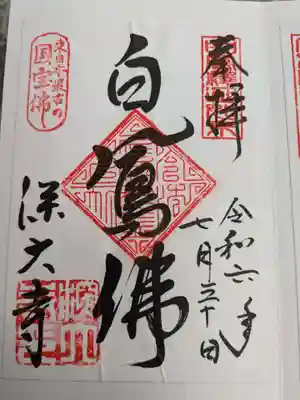 奉拝
令和六年
七月三十日
白鳳佛
東日本最古の
国宝佛
深大寺